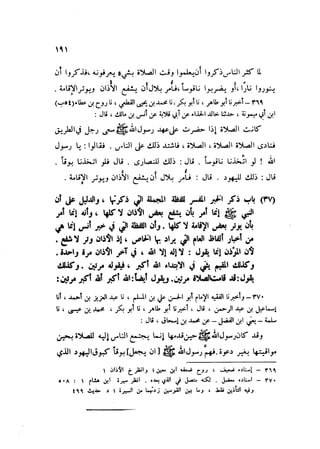 ١٩١
لما كثر الناس ذكروا أن يعلموا وقت الصلاة بشيء يعرفونه، فذكروا أن
ينوروا نارًا، أو يضربوا ناقوسًا، فأمر بلال أن يشفع الأذان ويوتر الإقامة.
٣٦٩ - أخبرنا أبو طاهر، نا أبو بكر، نا محمد بن يحيى القطعي، نا روح بن عطاء (٤٥ ب)
ابن أبي ميمونة، حدثنا خالد الحذاء عن أبي قلابة عن أنس بن مالك، قال:
كانت الصلاة إذا حضرت على عهد رسول الله ﷺ سعى رجل في الطريق
فنادى الصلاة الصلاة، الصلاة، فاشتد ذلك على الناس. فقالوا: يا رسول
الله! لو اتخذنا ناقوسًا. قال: ذلك للنصارى. قال فلو اتخذنا بوقًا.
قال: ذلك لليهود. قال: فأمر بلال أن يشفع الأذان ويوتر الإقامة.
(٣٧) باب ذكر الخبر المفسر للفظة المجملة التي ذكرتها، والدليل على أن
النبي ﷺ إنما أمر بأن يشفع بعض الأذان لا كلها، وأنه إنما أمر
بأن يوتر بعض الإقامة لا كلها. وأن اللفظة التي في خبر أنس إنما هي
من أخبار ألفاظ العام التي يراد بها الخاص، إذ الأذان وتر لا شفع.
لأن المؤذن إنما يقول: لا إله إلا الله، في آخر الأذان مرة واحدة.
وكذلك المقيم يثني في الابتداء الله أكبر، فيقوله مرتين. وكذلك
يقول: قد قامت الصلاة مرتين. ويقول أيضًا: الله أكبر الله أكبر مرتين:
٣٧٠ - وأخبرنا الفقيه الإمام أبو الحسن علي بن المسلم، نا عبد العزيز بن أحمد، أنا
إسماعيل بن عبد الرحمن، قال، أخبرنا أبو طاهر، نا أبو بكر، محمد بن عيسى، نا
سلمة - يعني ابن الفضل - عن محمد بن إسحاق، قال:
وقد كان رسول الله ﷺ حين قدمها إنما يجتمع الناس إليه للصلاة بحين
مواقيتها بغير دعوة. فهم رسول الله ﷺ [أن يجعل] بوقًا كبوق اليهود الذي
٣٦٩ - إسناده ضعيف، روح ضعفه ابن معين؛ وانظر خ الأذان ١
٣٧٠ - إسناده معضل. لكنه متصل في الذي بعده. انظر سيرة ابن هشام ١ : ٥٠٨
وفيه التأذين فقط، وما بين القوسين زدتهما من السيرة؛ د حديث ٤٩٩